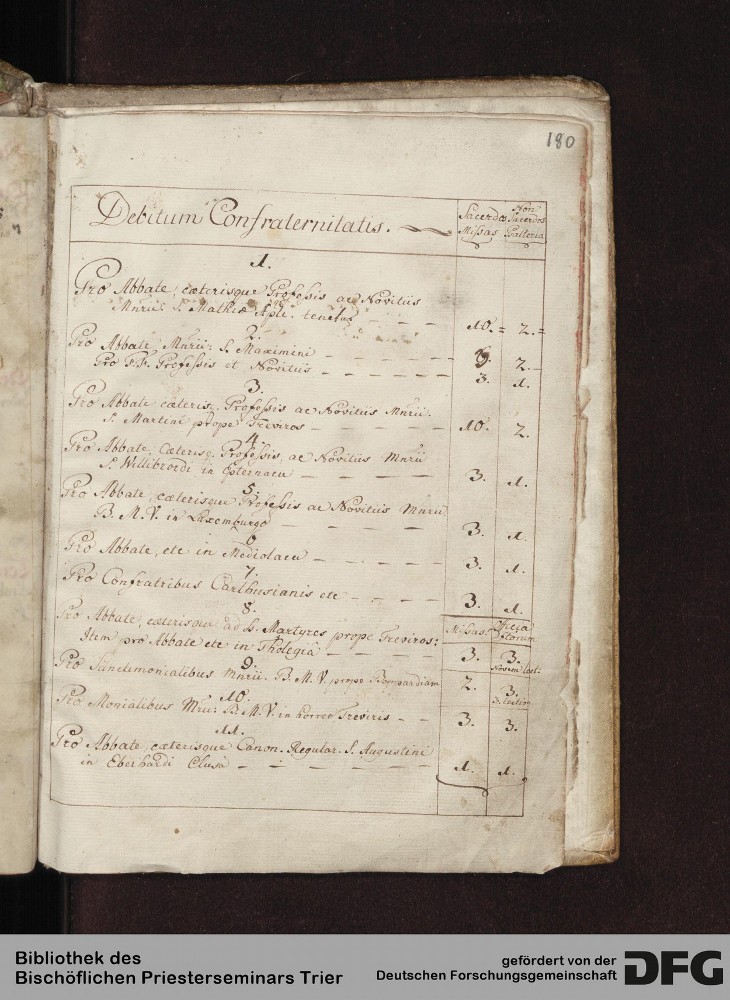 180
Debitum Confraternitatis.
Sacerdos Missas
Non Sacerdos Psalteria
1.
Pro Abbate, cæterisque Professis ac Novitiis
Mnrii: S. Mathiæ Aple. tenetur 10. 2.
2.
Pro Abbate, Mnrii: S. Maximini 9. 2.
Pro F.F. Professis et Novitiis 3. 1.
3.
Pro Abbate cæterisq. Professis ac Novitiis Mnrii:
S. Martini prope Treviros 10. 2.
4.
Pro Abbate, Cæterisq. Professis, ac Novitiis Mnrii
S. Willibrordi in Epternacu 3. 1.
5.
Pro Abbate, cæterisque Professis ac Novitiis Mnrii
B. M. V. in Luxemburgo 3. 1.
6
Pro Abbate, etc in Mediolacu 3. 1.
7.
Pro Confratribus Carthusianis etc 3. 1.
8.
Missas. Officia
Pro Abbate, cæterisque ad SS. Martyres prope Treviros:
Item pro Abbate etc in Tholegia 3. 3.
Novem lect:
9.
Pro Sanctimonialibus Mnrii: B. M. V. prope Boppardiam 2. 3.
3. lection
10.
Pro Monialibus Mrii: B. M. V. in horreo Treviris 3. 3.
11.
Pro Abbate, cæterisque Canon. Regular. S. Augustini
in Eberhardi Clusa 1. 1.
Bibliothek des
Bischöflichen Priesterseminars Trier
gefördert von der
Deutschen Forschungsgemeinschaft
DFG